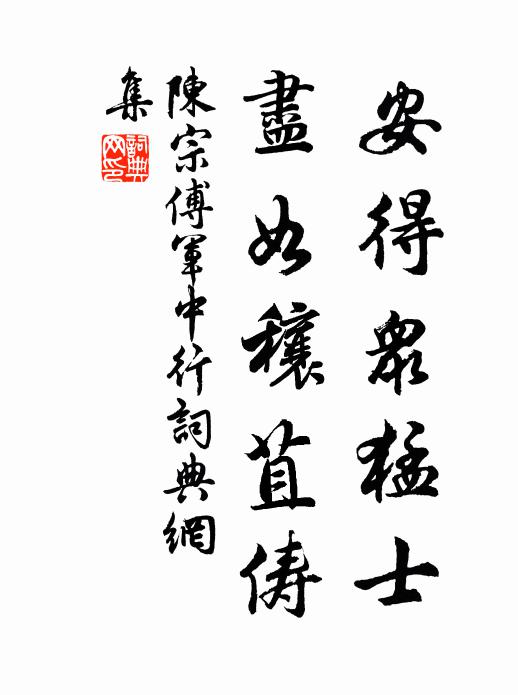 安得衆猛士
盡如穰苴儔
陳宗傅軍中行詞典網
集
詞典
网印